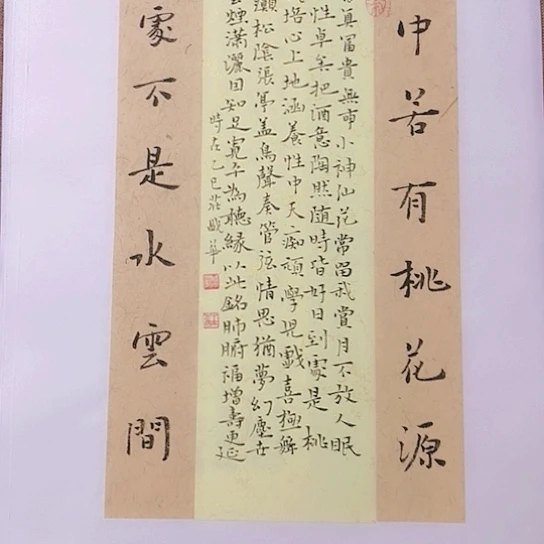 中若有桃花源
真富貴無市小神仙花常留我賞月不放人眠
性卓矣把酒意陶然随時皆好日到處是桃
培心上地涵養性中天痴頑學児戲喜極
瀨松陰張亭盖鳥聲奏管弦情思猶夢幻塵世
煙潇灑目知足寬午為聴緣以此銘肺腑福增壽更延
時在乙巳莊
處不是水雲間